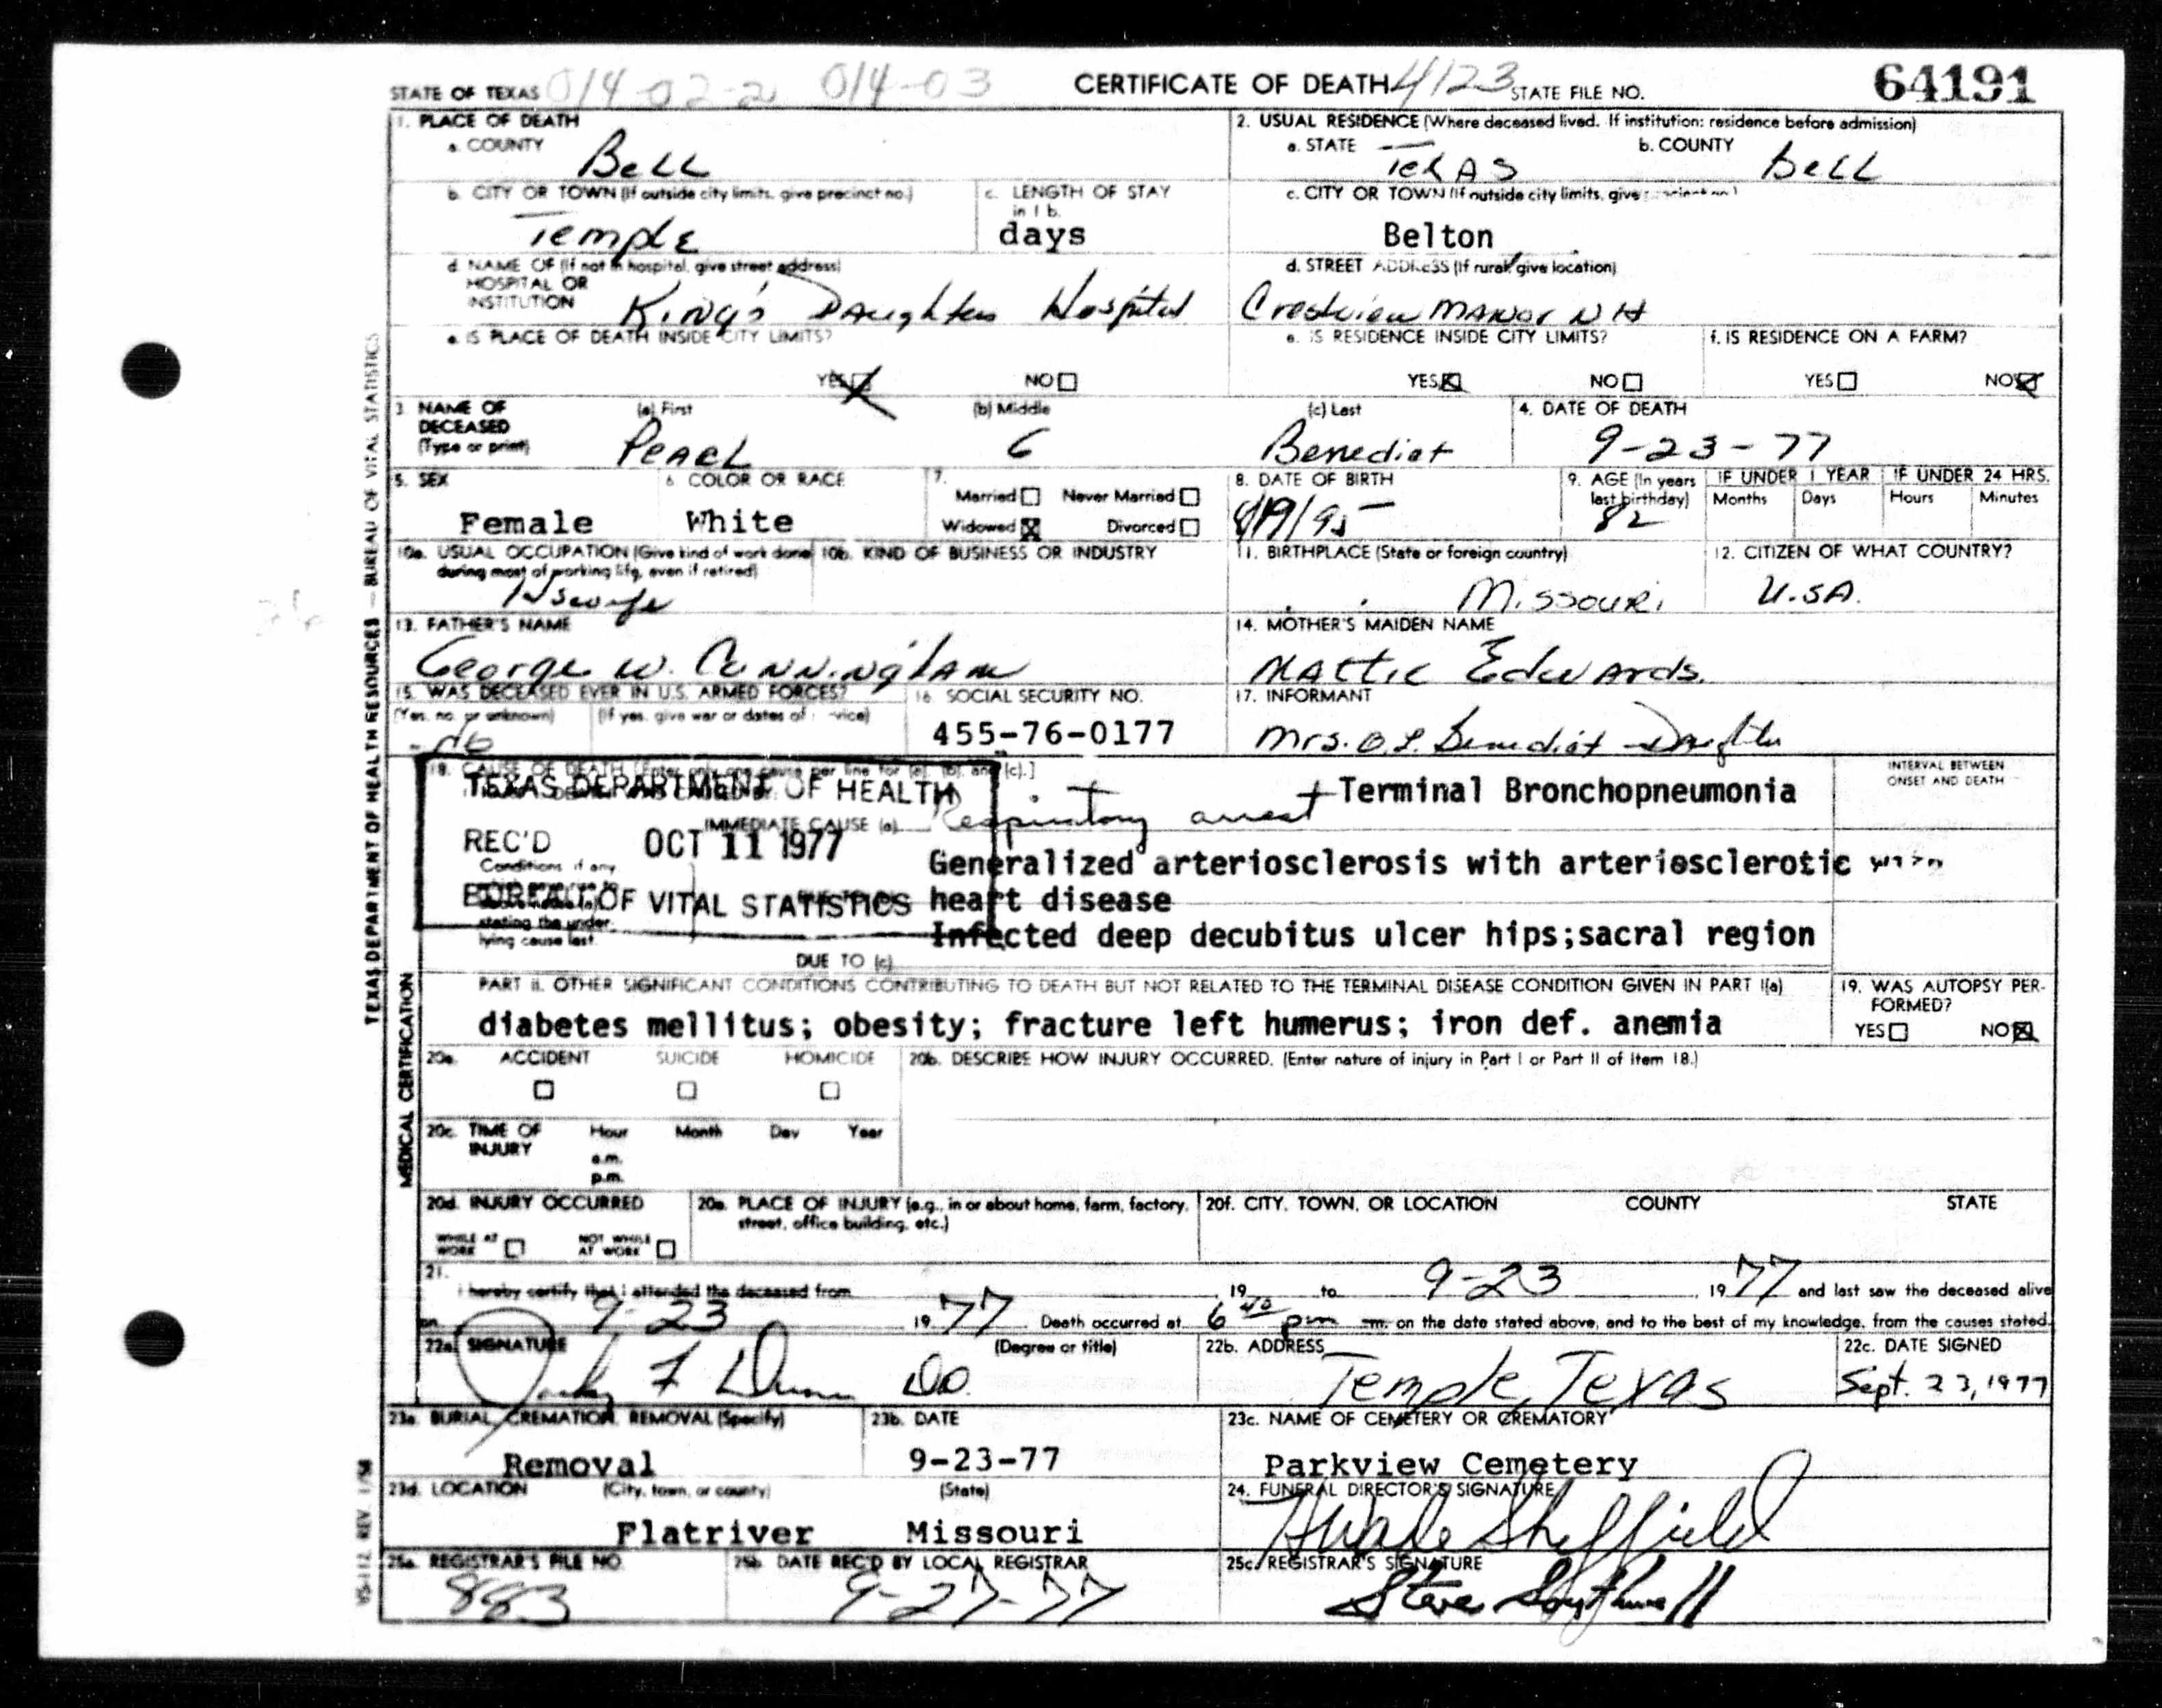 STATE OF TEXAS 014-02-2 014-03 CERTIFICATE OF DEATH 4123 STATE FILE NO. 64191
1. PLACE OF DEATH
a. COUNTY Bell
2. USUAL RESIDENCE (Where deceased lived. If institution: residence before admission)
a. STATE Texas b. COUNTY Bell
b. CITY OR TOWN (If outside city limits, give precinct no.) Temple
c. LENGTH OF STAY in 1 b. days
c. CITY OR TOWN (If outside city limits, give
Belton
d. NAME OF (If not in hospital, give street address)
HOSPITAL OR
INSTITUTION King's Daughters Hospital
d. STREET ADDRESS (If rural give location)
Crestview Manor N H
e. IS PLACE OF DEATH INSIDE CITY LIMITS?
YES NO
e. IS RESIDENCE INSIDE CITY LIMITS?
YES NO
f. IS RESIDENCE ON A FARM?
YES NO
3. NAME OF DECEASED (Type or print)
(a) First Pearl (b) Middle C (c) Last Benedict
4. DATE OF DEATH 9-23-77
5. SEX Female
6. COLOR OR RACE White
7. Married Never Married
Widowed Divorced
8. DATE OF BIRTH /95
9. AGE (In years last birthday) 82
IF UNDER 1 YEAR Months Days
IF UNDER 24 HRS. Hours Minutes
10a. USUAL OCCUPATION (Give kind of work done during most of working life, even if retired)
10b. KIND OF BUSINESS OR INDUSTRY
11. BIRTHPLACE (State or foreign country) Missouri
12. CITIZEN OF WHAT COUNTRY? U.S.A.
13. FATHER'S NAME George W. Cunningham
14. MOTHER'S MAIDEN NAME Mattie Edwards
15. WAS DECEASED EVER IN U.S. ARMED FORCES?
(Yes, no, or unknown) (If yes, give war or dates of
no
16. SOCIAL SECURITY NO. 455-76-0177
17. INFORMANT Mrs. O.L. Benedict - Daughter
18. CAUSE OF DEATH [Enter only one cause per line for (a), (b), and (c).]
TEXAS DEPARTMENT OF HEALTH
REC'D OCT 11 1977
BUREAU OF VITAL STATISTICS
IMMEDIATE CAUSE (a) Respiratory arrest Terminal Bronchopneumonia
INTERVAL BETWEEN ONSET AND DEATH
Conditions if any
stating the under-
lying cause last.
Generalized arteriosclerosis with arteriosclerotic
heart disease
Infected deep decubitus ulcer hips;sacral region
DUE TO (c)
PART II. OTHER SIGNIFICANT CONDITIONS CONTRIBUTING TO DEATH BUT NOT RELATED TO THE TERMINAL DISEASE CONDITION GIVEN IN PART I(a)
diabetes mellitus; obesity; fracture left humerus; iron def. anemia
19. WAS AUTOPSY PERFORMED?
YES NO
20a. ACCIDENT SUICIDE HOMICIDE
20b. DESCRIBE HOW INJURY OCCURRED. (Enter nature of injury in Part I or Part II of item 18.)
20c. TIME OF INJURY Hour Month Day Year
a.m.
p.m.
20d. INJURY OCCURRED
WHILE AT WORK NOT WHILE AT WORK
20e. PLACE OF INJURY (e.g., in or about home, farm, factory, street, office building, etc.)
20f. CITY, TOWN, OR LOCATION COUNTY STATE
21. I hereby certify that I attended the deceased from , 19 to 9-23 , 19 77 and last saw the deceased alive
on 9-23 19 77. Death occurred at 6 40 pm m. on the date stated above, and to the best of my knowledge, from the causes stated.
22a. SIGNATURE (Degree or title) DO
22b. ADDRESS Temple, Texas
22c. DATE SIGNED Sept. 23, 1977
23a. BURIAL, CREMATION, REMOVAL (Specify) Removal
23b. DATE 9-23-77
23c. NAME OF CEMETERY OR CREMATORY Parkview Cemetery
23d. LOCATION (City, town, or county) (State)
Flatriver Missouri
24. FUNERAL DIRECTOR'S SIGNATURE
Sheffield
25a. REGISTRAR'S FILE NO. 883
25b. DATE REC'D BY LOCAL REGISTRAR 9-27-77
25c. REGISTRAR'S SIGNATURE
Steve
TEXAS DEPARTMENT OF HEALTH RESOURCES — BUREAU OF VITAL STATISTICS
MEDICAL CERTIFICATION
VS-112 REV. 1/58